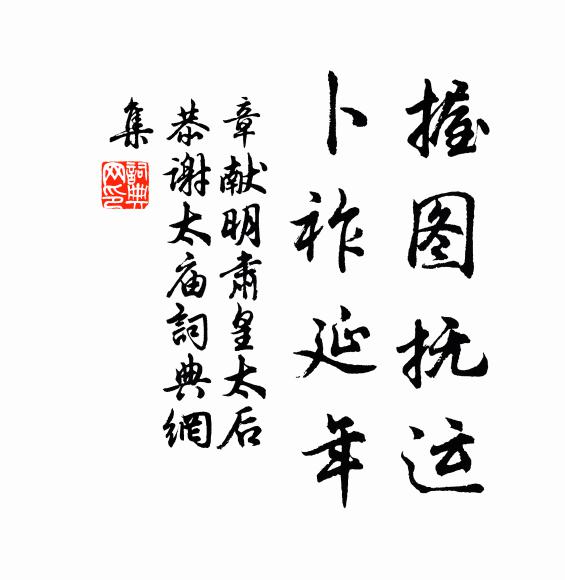 握图抚运
卜祚延年
章献明肃皇太后
恭谢太庙詞典網
集
詞典網印